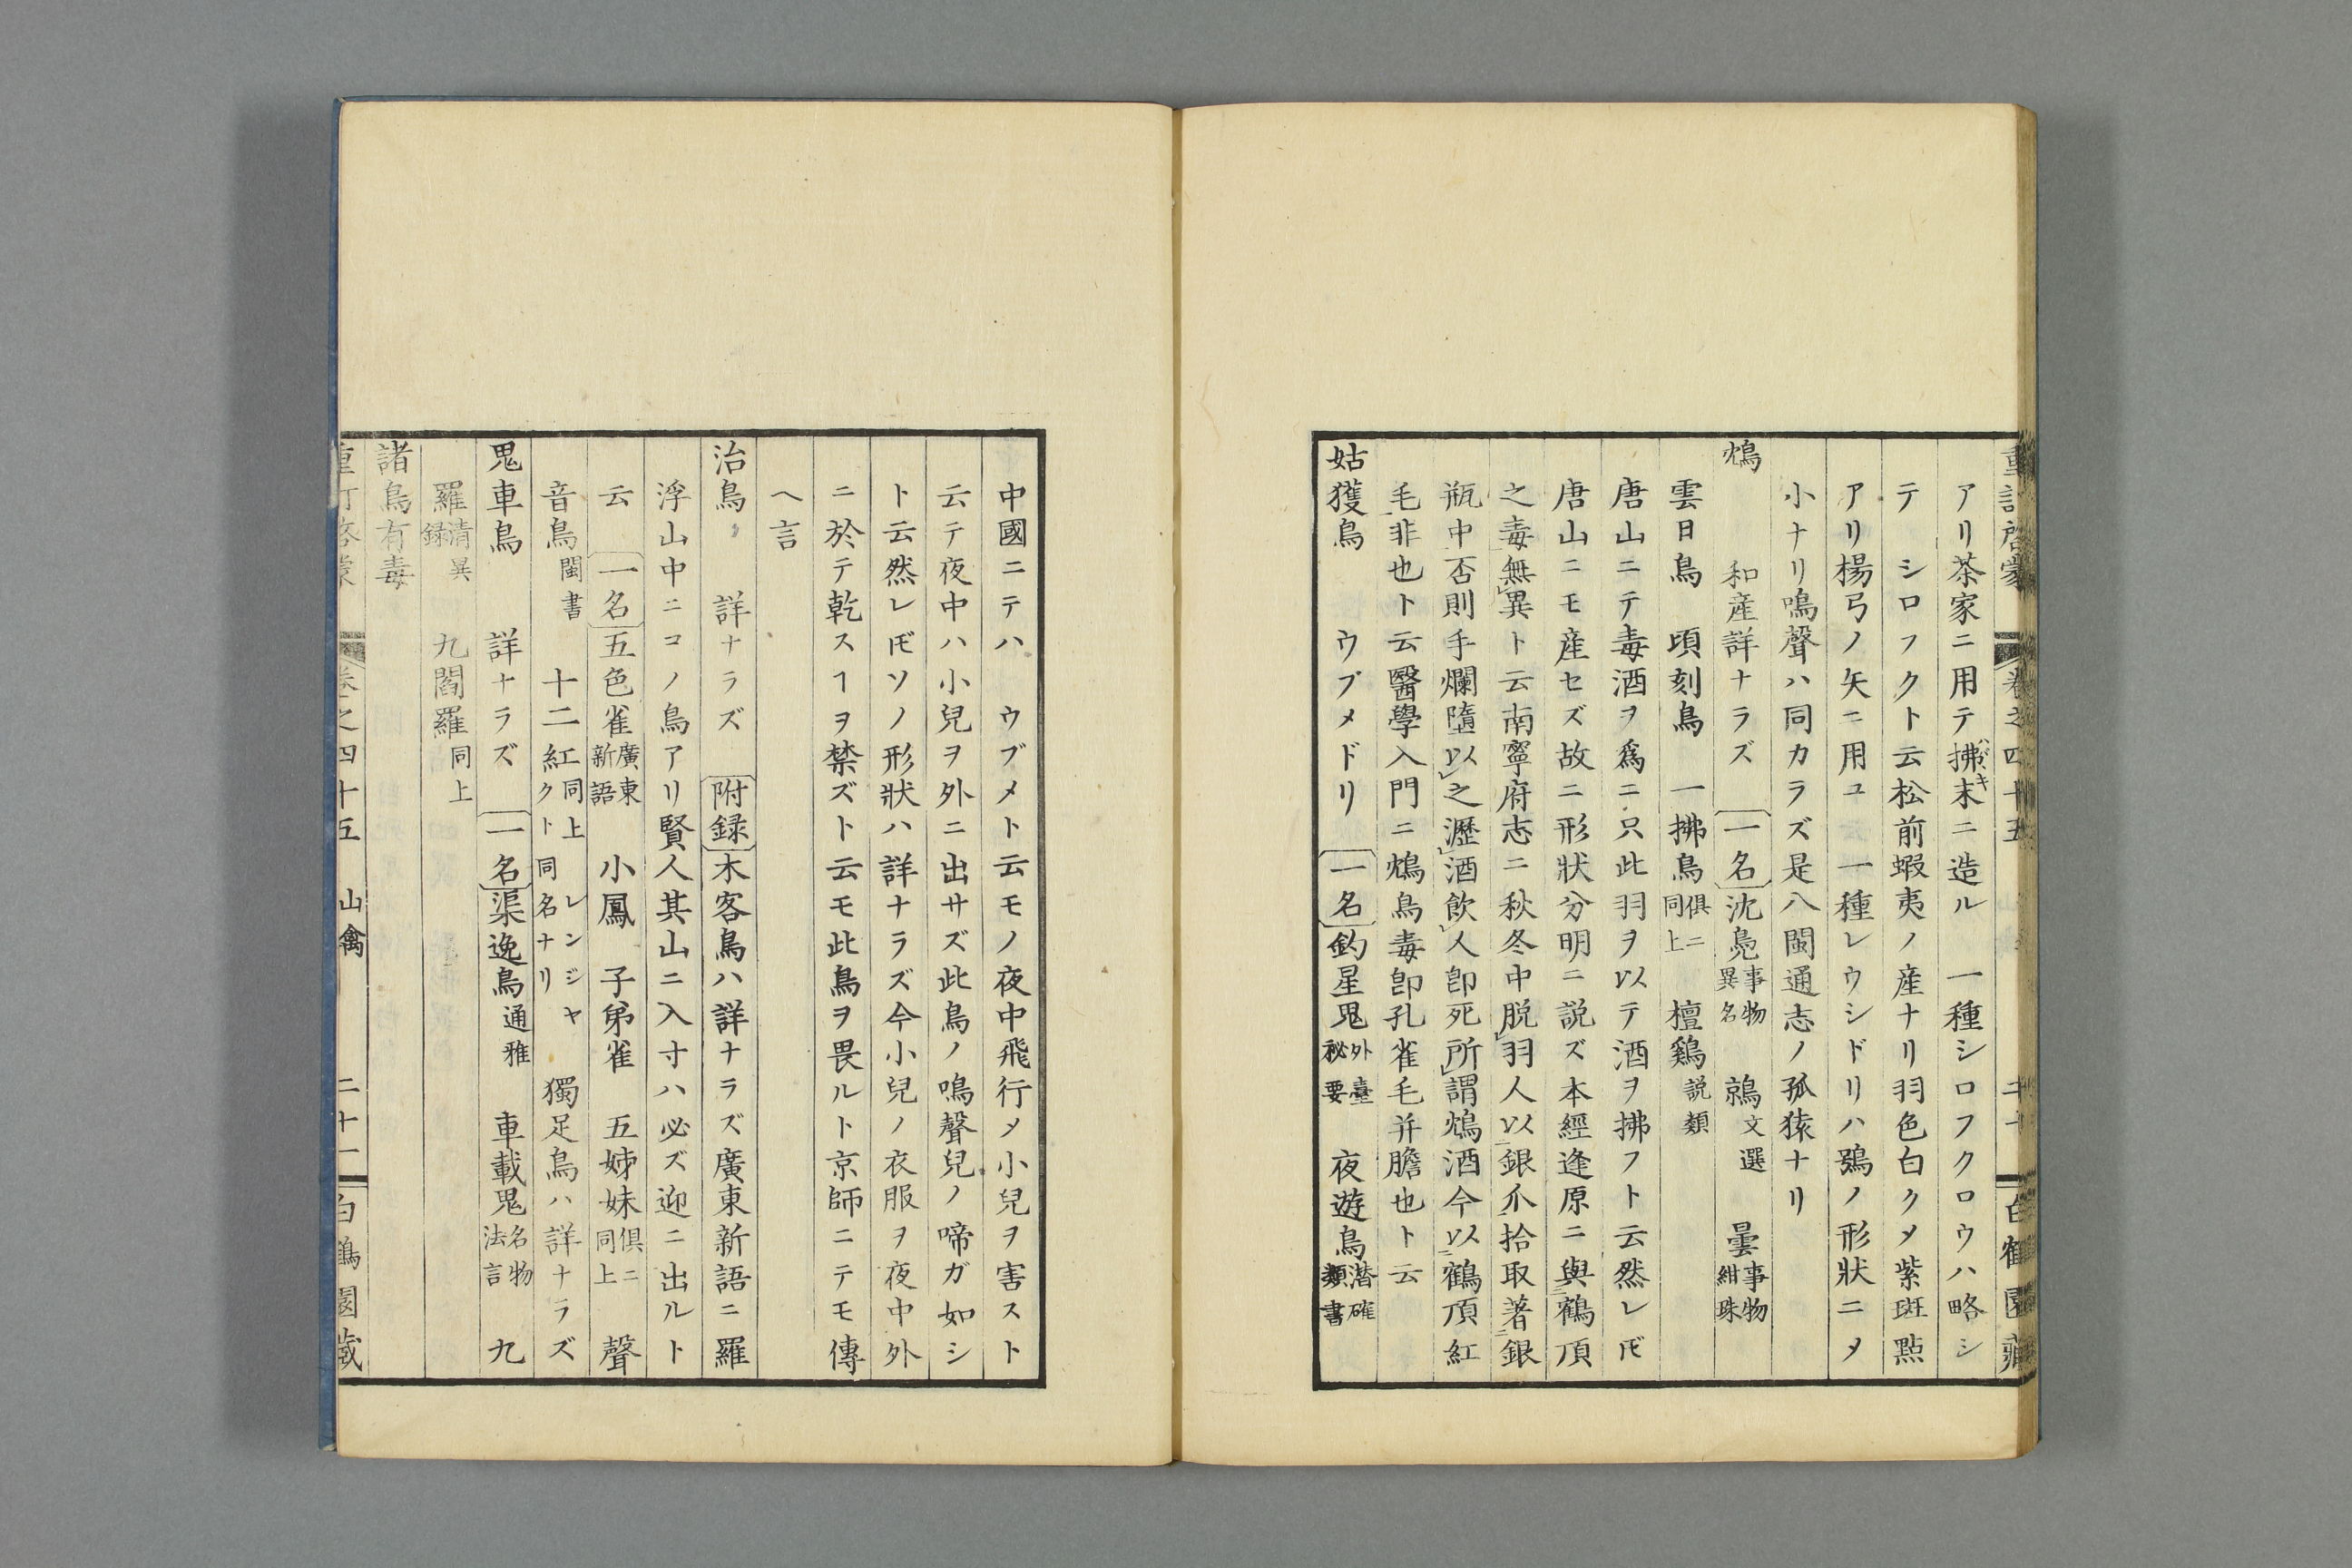 重訂啓蒙 卷之四十五 二十 白鶴園藏
アリ茶家ニ用テ拂末ニ造ル 一種シロフクロウハ略シ
テ シロフクト云松前蝦夷ノ産ナリ羽色白クメ紫斑點
アリ楊弓ノ矢ニ用ユ 一種レウシドリハ鵶ノ形狀ニメ
小ナリ鳴聲ハ同カラズ是八閩通志ノ孤猿ナリ
鴆 和産詳ナラズ 一名沈鳧事物異名 鷻文選 曇事物紺珠
雲日鳥 頃刻鳥 一拂鳥俱ニ同上 檀鷄説類
唐山ニテ毒酒ヲ爲ニ只此羽ヲ以テ酒ヲ拂フト云然レ𪜈
唐山ニモ産セズ故ニ形狀分明ニ説ズ本經逢原ニ與鶴頂
之毒無異ト云南寧府志ニ秋冬中脱羽人以銀爪拾取著銀
瓶中否則手爛墮以之瀝酒飲人卽死所謂鴆酒今以鶴頂紅
毛非也ト云醫學入門ニ鴆鳥毒卽孔雀毛并膽也ト云
姑獲鳥 ウブメドリ 一名釣星鬼外臺秘要 夜遊鳥潜確類書
中國ニテハ ウブメト云モノ夜中飛行メ小兒ヲ害スト
云テ夜中ハ小兒ヲ外ニ出サズ此鳥ノ鳴聲兒ノ啼ガ如シ
ト云然レ𪜈ソノ形狀ハ詳ナラズ今小兒ノ衣服ヲ夜中外
ニ於テ乾スヿヲ禁ズト云モ此鳥ヲ畏ルト京師ニテモ傳
ヘ言
治鳥 詳ナラズ 附録木客鳥ハ詳ナラズ廣東新語ニ羅
浮山中ニコノ鳥アリ賢人其山ニ入寸ハ必ズ迎ニ出ルト
云 一名五色雀廣東新語 小鳳 子弟雀 五姊妹俱ニ同上 聲
音鳥閩書 十二紅同上レンジヤクト同名ナリ 獨足鳥ハ詳ナラズ
鬼車鳥 詳ナラズ 一名渠逸鳥通雅 車載鬼名物法言 九
羅清異録 九閻羅同上
諸鳥有毒
重訂啓蒙 卷之四十五 山禽 二十一 白鶴園藏